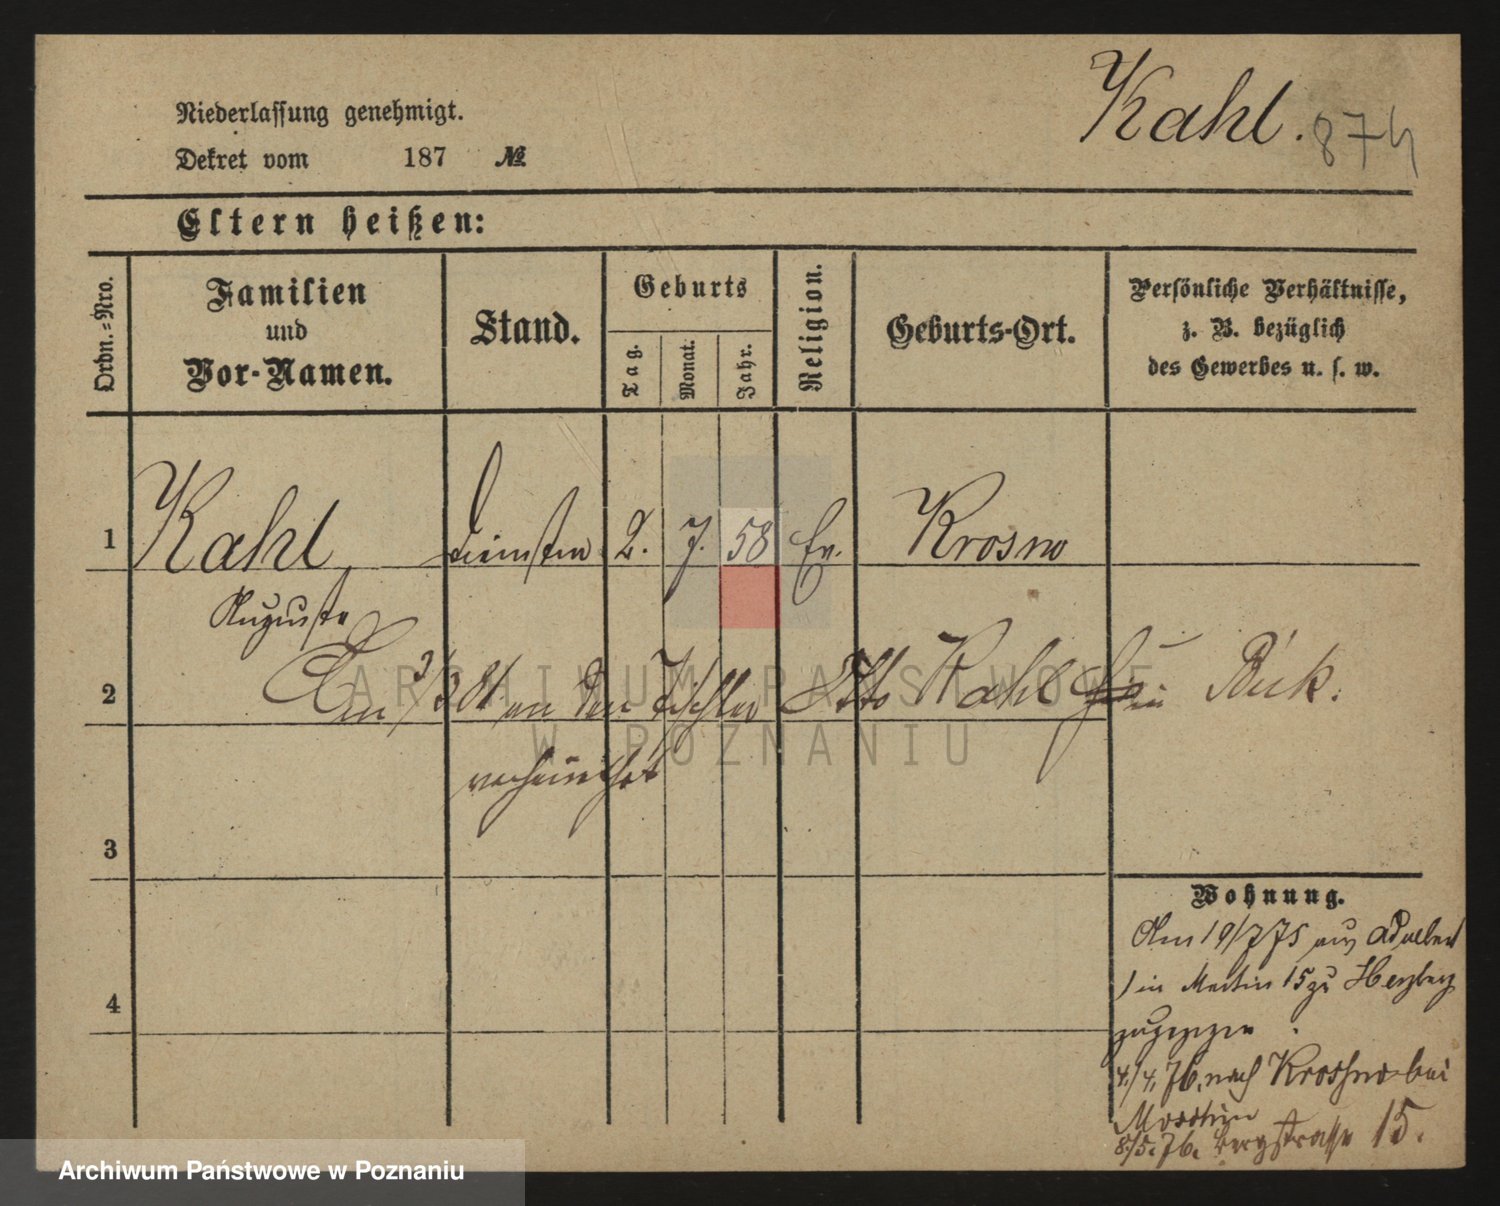 Kahl. 874
Niederlassung genehmigt.
Dekret vom 187 №
Eltern heißen:
Ordn.=Nro.
Familien
und
Vor-Namen.
Stand.
Geburts
Tag.
Monat.
Jahr.
Religion.
Geburts-Ort.
Persönliche Verhältnisse,
z. B. bezüglich
des Gewerbes u. s. w.
1 Kahl 2. 7. 58 Ev. Krosno
Auguste
2 81 an den Tischler Otto Kahl in Buk.
verheirathet
3
Wohnung.
Am 19/7 75 aus
in Martin 15 zu Herzberg
zugezogen
4
4/4. 76. nach Kroshno bei
Moschin
8/5. 76. Bergstrasse 15.
ARCHIWUM PAŃSTWOWE
W POZNANIU
Archiwum Państwowe w Poznaniu